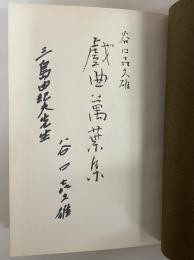 谷口喜久雄
戯曲萬葉集
三島由紀夫先生
谷口喜久雄